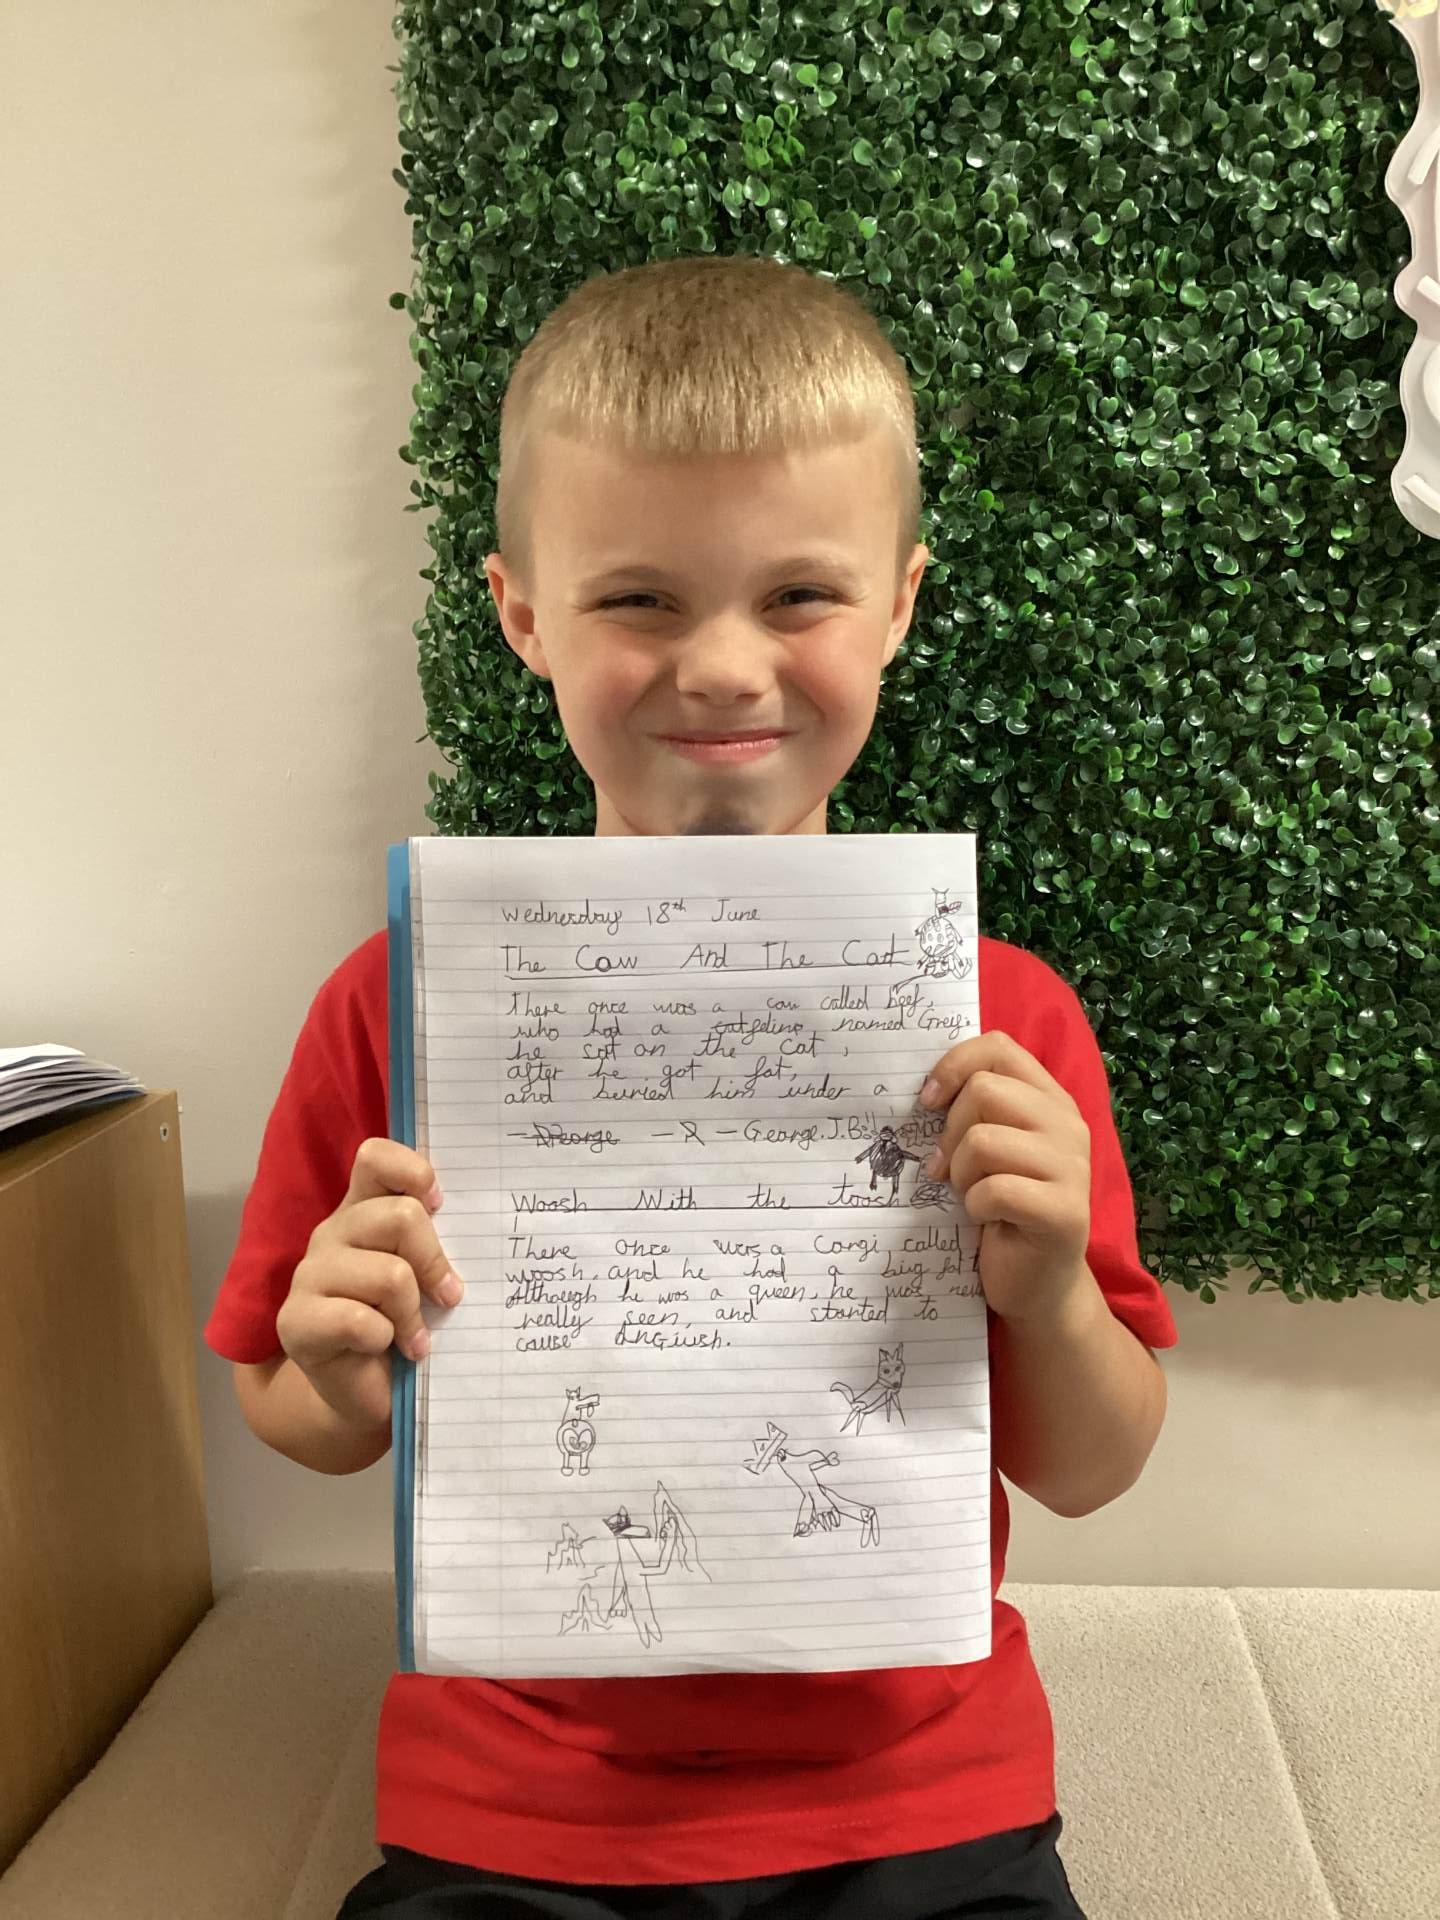 Wednesday 18th June
The Cow And The Cat
There once was a cow called beef,
who had a named Greif.
he sat on the cat,
after he got fat,
and buried him under a
- George - - George.J.B
MOO
Woosh With the toosh
There once was a Corgi called
woosh, and he had a big fat
Although he was a queen, he was
really seen, and started to
cause anGiush.